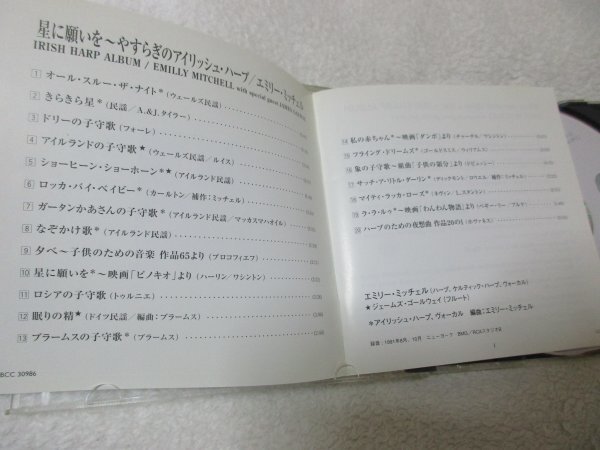 星に願いを〜やすらぎのアイリッシュ・ハープ/エミリー・ミッチェル
IRISH HARP ALBUM / EMILLY MITCHELL with special guest JAMES
1 オール・スルー・ザ・ナイト*(ウェールズ民謡)
2 きらきら星*(民謡/A.&J.タイラー)
3 ドリーの子守歌(フォーレ)
4 アイルランドの子守歌★(ウェールズ民謡/ルイス)
5 ショーヒーン・ショーホーン*★(アイルランド民謡)
6 ロッカ・バイ・ベイビー*(カールトン/補作:ミッチェル)
7 ガータンかあさんの子守歌*(アイルランド民謡/マッカスマハオイル)
8 なぞかけ歌*(アイルランド民謡)
9 夕べ〜子供のための音楽 作品65より(プロコフィエフ)
10 星に願いを*〜映画「ピノキオ」より(ハーリン/ワシントン)
11 ロシアの子守歌(トゥルニエ)
12 眠りの精★(ドイツ民謡/編曲:ブラームス)
13 ブラームスの子守歌*(ブラームス)
BCC 30986
14 私の赤ちゃん*〜映画「ダンボ」より(チャーチル/ワシントン)
15 フライング・ドリームズ*(ゴールドスミス/ウィリアムス)
16 象の子守歌〜組曲「子供の領分」より(ドビュッシー)
17 サッチ・ア・リトル・ダーリン*
18 マイティ・ラッカ・ローズ*(ネヴィン/L.スタントン)
19 ラ・ラ・ルゥ*〜映画「わんわん物語」より(ペギー・リー/
20 ハープのための夜想曲
エミリー・ミッチェル(ハープ、ケルティック・ハープ、ヴォーカル)
★ジェームズ・ゴールウェイ(フルート)
*アイリッシュ・ハープ、ヴォーカル 編曲:エミリー・ミッチェル
録音:1991年8月、10月 ニューヨーク BMG/RCAスタジオA
1